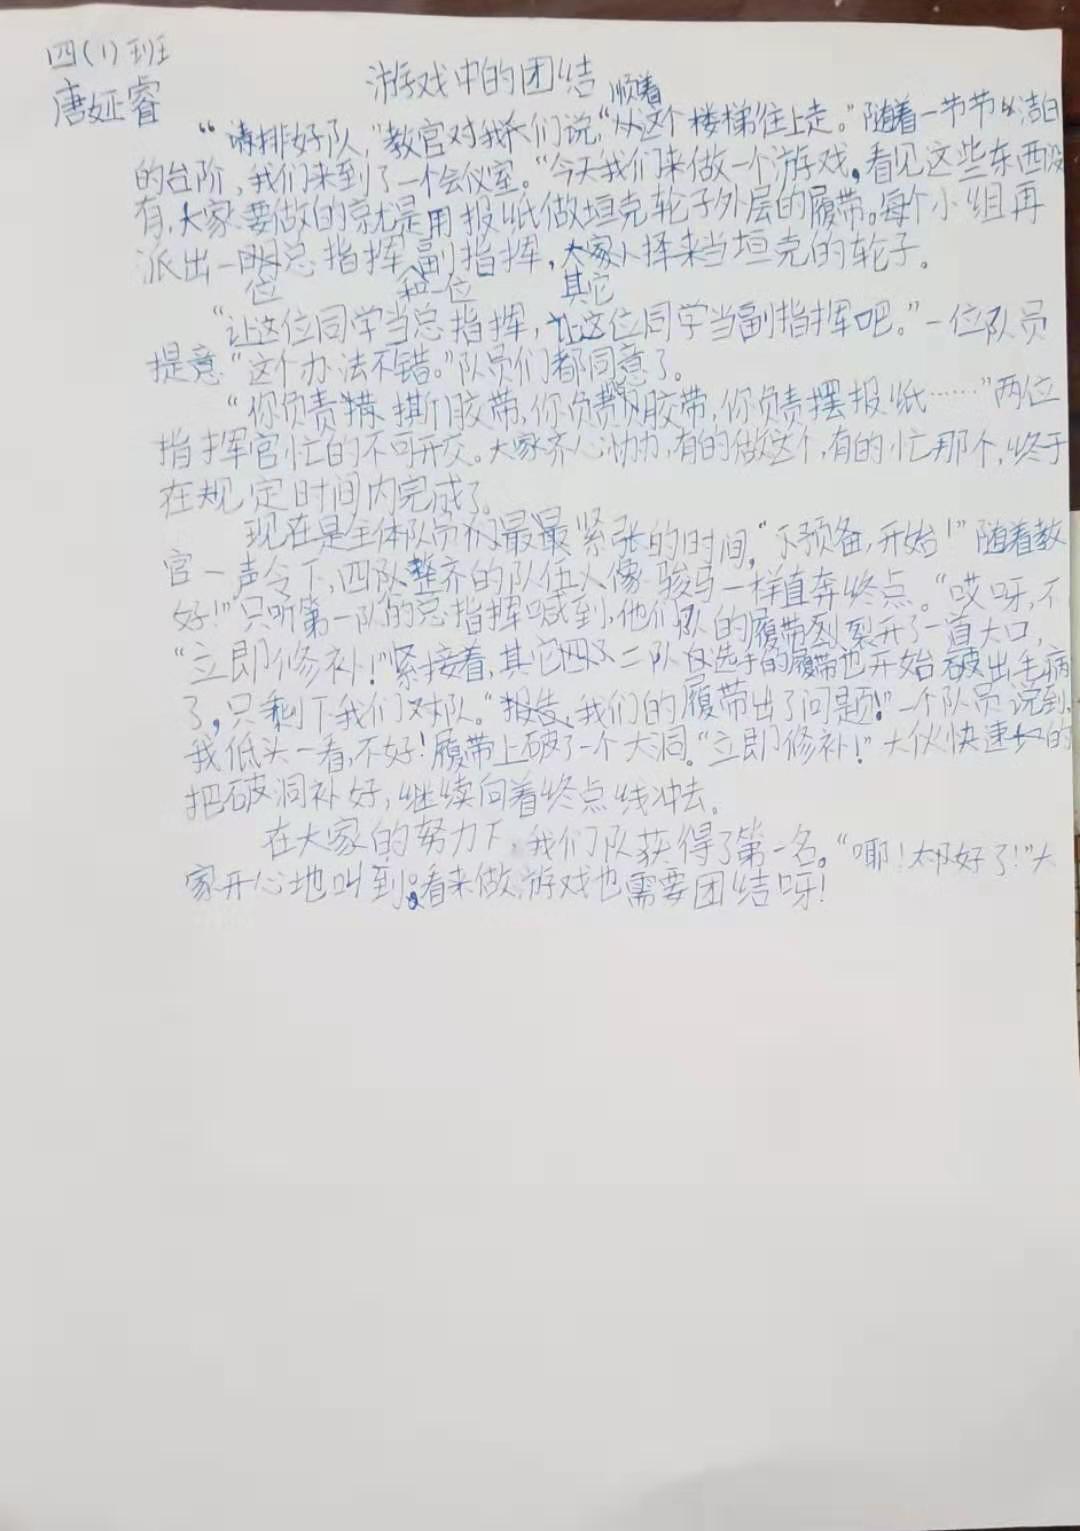 四(1)班
游戏中的团结
唐娅睿
顺着
“请排好队,”教官对我们说,“从这个楼梯往上走。”随着一节节洁白
的台阶,我们来到了一个会仪室。“今天我们来做一个游戏,看见这些东西没
有,大家要做的就是用报纸做坦克轮子外层的履带。每个小组再
派出一总指挥副指挥,人择来当坦克的轮子。
位 和一位 其它
“让这位同学当总指挥,让这位同学当副指挥吧。”一位队员
提意“这个办法不错。”队员们都同意了。
“你负责撕胶带,你负责贝胶带,你负责摆报纸……”两位
指挥官忙的不可开交。大家齐心协力,有的做这个,有的忙那个,终于
在规定时间内完成了。
现在是全体队员们最紧张的时间,“预备,开始!”随着教
官一声令下,四队整齐的队伍像骏马一样直奔终点。“哎呀,不
好!”只听第一队的总指挥喊到,他们队的履带裂开了一道大口,
“立即修补!”紧接着,其它二队选手的履带也开始破出毛病
了,只剩下我们队。“报告,我们的履带出了问题!”一个队员说到,
我低头一看,不好!履带上破了一个大洞。“立即修补!”大伙快速的
把破洞补好,继续向着终点线冲去。
在大家的努力下,我们队获得了第一名。“耶!太好了!”大
家开心地叫到。看来做游戏也需要团结呀!